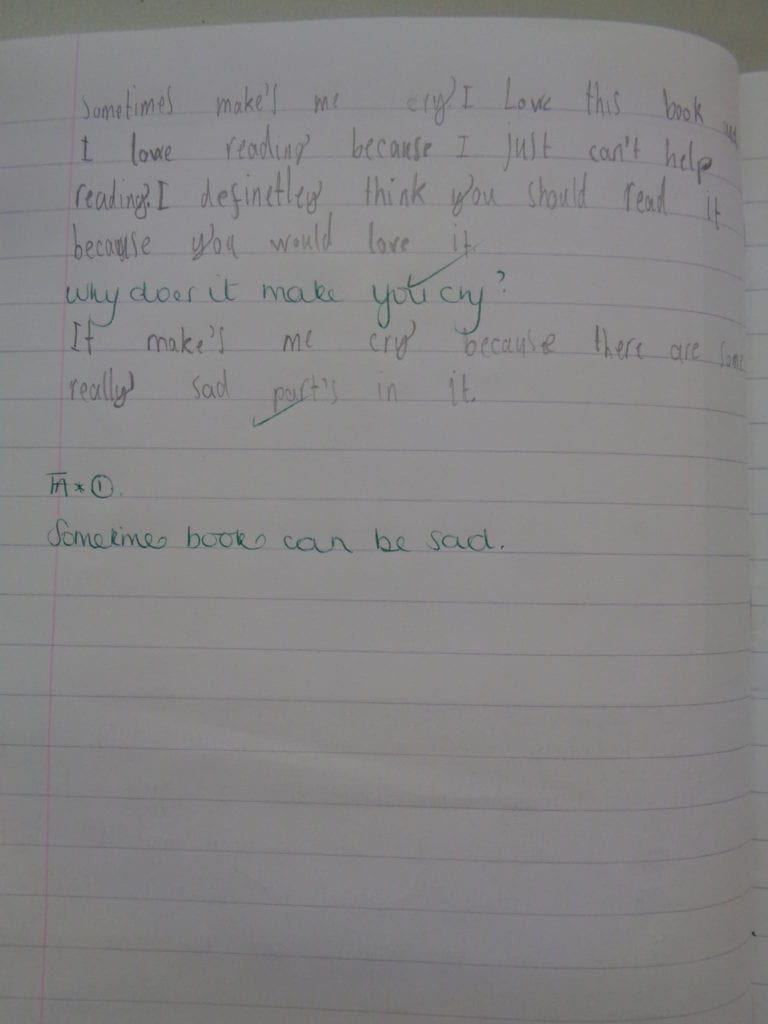 sometimes make's me cry. I Love this book and
I love reading because I just can't help
reading. I definetley think you should read it
because you would love it.
why does it make you cry?
It make's me cry because there are some
really sad part's in it.
TA * 1.
Sometimes books can be sad.